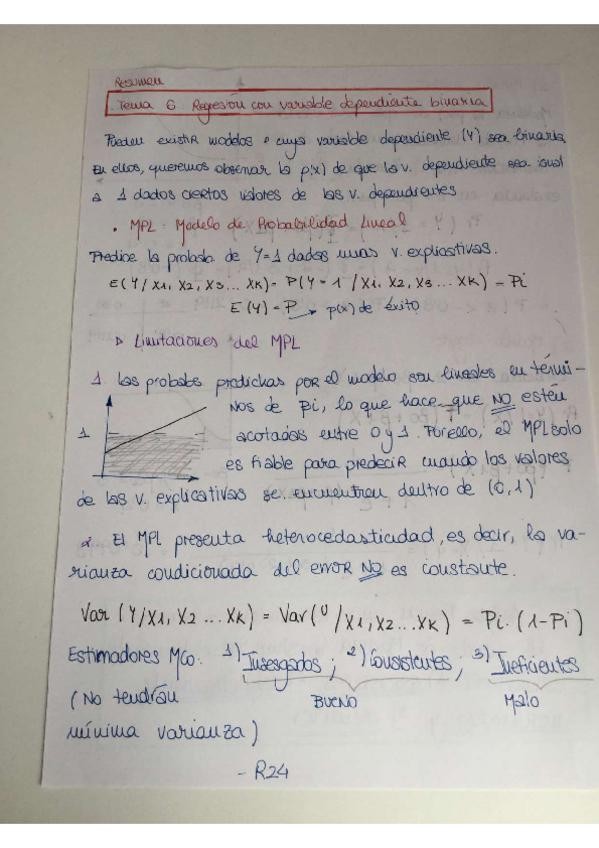 Resumen
Tema 6 Regresión con variable dependiente binaria
Pueden existir modelos cuya variable dependiente (Y) sea binaria,
En ellos, queremos observar la p(x) de que la v. dependiente sea igual
a 1 dados ciertos valores de las v. dependientes
• MPL: Modelo de Probabilidad Lineal
Predice la probab de Y=1 dados unas v. explicativas.
E(Y/X1, X2, X3 ... XK) = P(Y=1/X1, X2, X3 ... XK) = Pi
E(Y) = P → p(x) de éxito
▷ Limitaciones del MPL
1. Las probabs predichas por el modelo son lineales en térmi-
nos de Pi, lo que hace que NO estén
1 acotadas entre 0 y 1. Por ello, el MPL solo
es fiable para predecir cuando los valores
de las v. explicativas se encuentren dentro de (0,1)
2. El MPL presenta heterocedasticidad, es decir, la va-
rianza condicionada del error NO es constante.
Var(Y/X1, X2 ... XK) = Var(U/X1, X2 ... XK) = Pi·(1-Pi)
Estimadores MCO: 1) Insesgados; 2) Consistentes; 3) Ineficientes
(No tendrán BUENO Malo
mínima varianza)
- R24